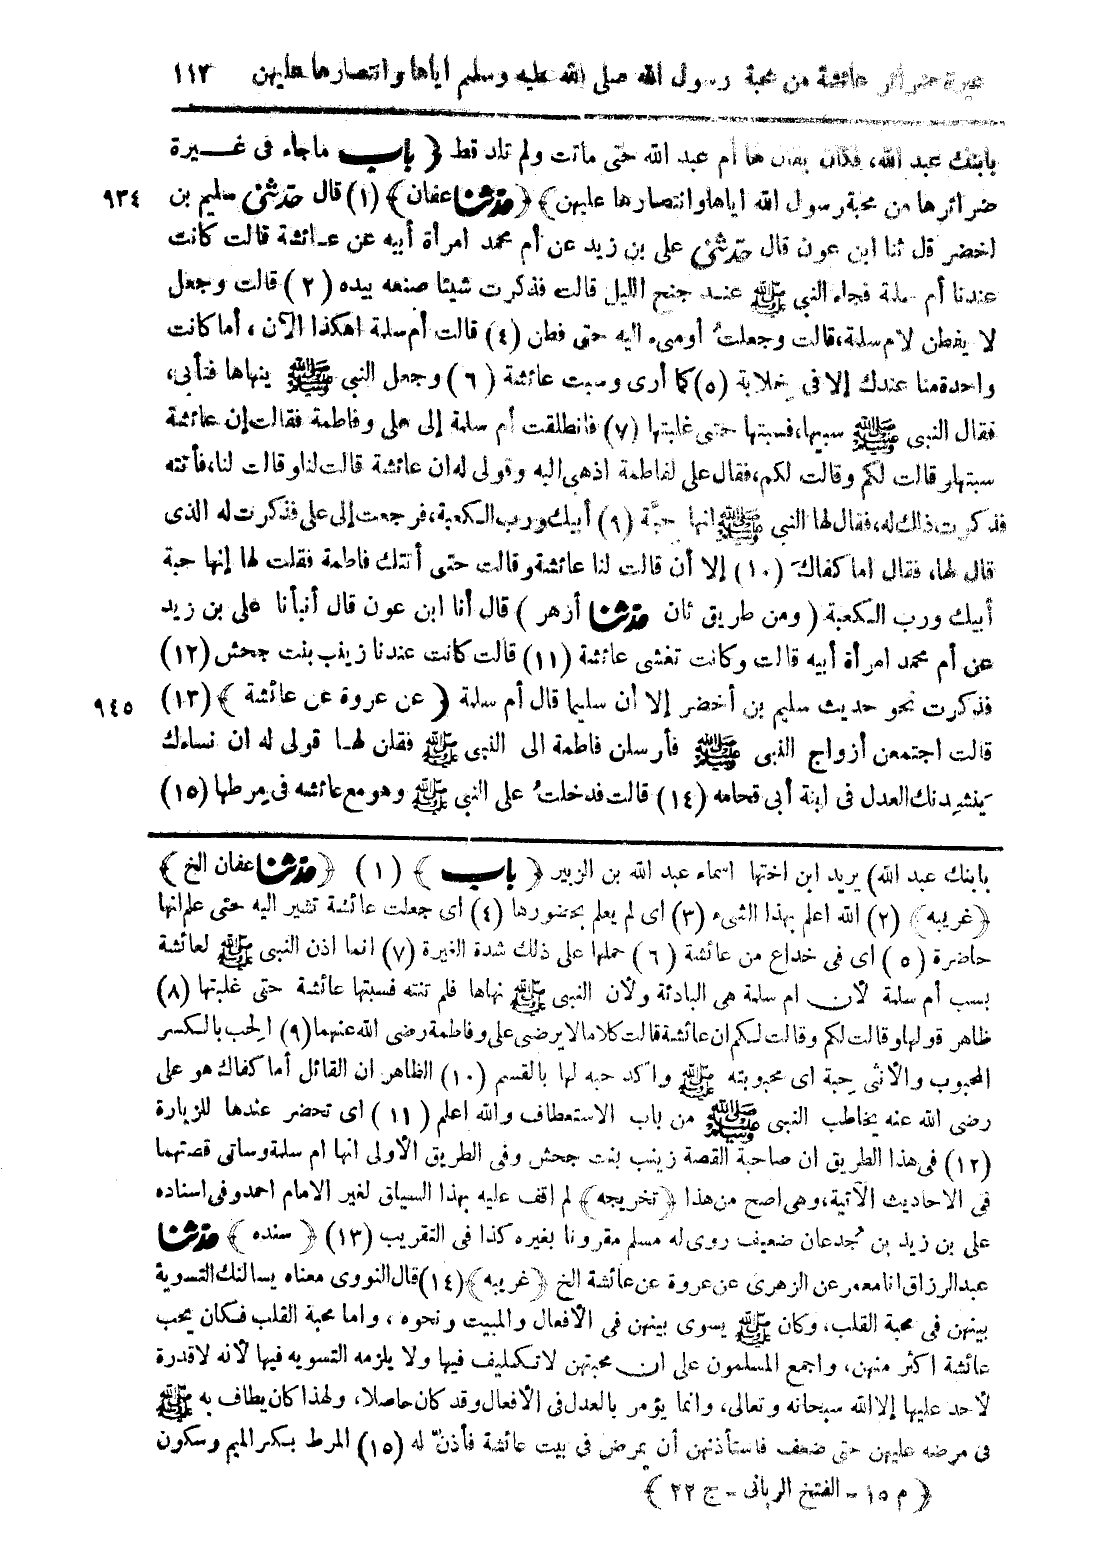 غيرة ضرائر عائشة من محبة رسول الله صلى الله عليه وسلم اياها وانتصارها عليهن ١١٣
بابنك عبد الله، فكان يقال لها أم عبد الله حتى ماتت ولم تلد قط ﴿ باب ماجاء فى غيرة
ضرائرها من محبة رسول الله اياها وانتصارها عليهن﴾ ﴿حدثنا عفان﴾ (١) قال حدثنى سليم بن ٩٣٤
اخضر قل ثنا ابن عون قال حدثنى على بن زيد عن أم محمد امرأة أبيه عن عائشة قالت كانت
عندنا أم سلمة فجاء النبى ﷺ عند جنح الليل قالت فذكرت شيئا صنعه بيده (٢) قالت وجعل
لا يفطن لام سلمة،قالت وجعلتُ أومىء اليه حتى فطن (٤) قالت أم سلمة اهكذا الآن ، أما كانت
واحدة منا عندك إلا فى خلابة (٥) كما أرى وسبت عائشة (٦) وجعل النبى ﷺ ينهاها فتأبى،
فقال النبى ﷺ سبيها،فسبتها حتى غلبتها (٧) فانطلقت أم سلمة إلى على وفاطمة فقالت إن عائشة
سبتها وقالت لكم وقالت لكم،فقال على لفاطمة اذهبى اليه وقولى له ان عائشة قالت لنا وقالت لنا،فأتته
فذكرت ذلك له،فقال لها النبى ﷺ انها حِبَّة (٩) أبيك ورب الكعبة،فرجعت إلى على فذكرت له الذى
قال لها، فقال اما كفاكَ (١٠) إلا أن قالت لنا عائشة وقالت حتى أتتك فاطمة فقلت لها إنها حبة
أبيك ورب الكعبة ( ومن طريق ثان حدثنا أزهر ) قال أنا ابن عون قال أنبأنا على بن زيد
عن أم محمد امرأة أبيه قالت وكانت تغشى عائشة (١١) قالت كانت عندنا زينب بنت جحش (١٢)
فذكرت نحو حديث سليم بن أخضر إلا أن سليما قال أم سلمة ﴿ عن عروة عن عائشة ﴾ (١٣) ٩٤٥
قالت اجتمعن أزواج النبى ﷺ فأرسلن فاطمة الى النبى ﷺ فقلن لها قولى له ان نساءك
يَنشدنك العدل فى ابنة أبى قحافه (١٤) قالت فدخلتُ على النبى ﷺ وهو مع عائشه فى مرطها (١٥)
بابنك عبد الله) يريد ابن اختها اسماء عبد الله بن الزبير ﴿ باب ﴾ (١) ﴿حدثنا عفان الخ ﴾
﴿غريبه﴾ (٢) الله اعلم بهذا الشىء (٣) اى لم يعلم بحضورها (٤) اى جعلت عائشة تشير اليه حتى علم انها
حاضرة (٥) اى فى خداع من عائشة (٦) حملها على ذلك شدة الغيرة (٧) انما اذن النبى ﷺ لعائشة
بسب أم سلمة لأن ام سلمة هى البادئة ولأن النبى ﷺ نهاها فلم تنته فسبتها عائشة حتى غلبتها (٨)
ظاهر قولها وقالت لكم وقالت لكم ان عائشة قالت كلاما لا يرضى على وفاطمة رضى الله عنهما (٩) الحِب بالكسر
المحبوب والأنثى حِبة اى محبوبته ﷺ واكد حبه لها بالقسم (١٠) الظاهر ان القائل أما كفاك هو على
رضى الله عنه يخاطب النبى ﷺ من باب الاستعطاف والله اعلم (١١) اى تحضر عندها للزيارة
(١٢) فى هذا الطريق ان صاحبة القصة زينب بنت جحش وفى الطريق الأولى انها ام سلمة وساتى قصتهما
فى الاحاديث الآتية،وهى اصح من هذا ﴿تخريجه﴾ لم اقف عليه بهذا السياق لغير الامام احمد وفى اسناده
على بن زيد بن جُدعان ضعيف روى له مسلم مقرونا بغيره كذا فى التقريب (١٣) ﴿ سنده ﴾ حدثنا
عبد الرزاق انا معمر عن الزهرى عن عروة عن عائشة الخ ﴿غريبه﴾ (١٤) قال النووى معناه يسالنك التسوية
بينهن فى محبة القلب، وكان ﷺ يسوى بينهن فى الأفعال والمبيت ونحوه ، واما محبة القلب فكان يحب
عائشة اكثر منهن، واجمع المسلمون على ان محبتهن لا تكليف فيها ولا يلزمه التسويه فيها لأنه لا قدرة
لأحد عليها إلا الله سبحانه وتعالى، وانما يؤمر بالعدل فى الأفعال وقد كان حاصلا، ولهذا كان يطاف به ﷺ
فى مرضه عليهن حتى ضعف فاستأذنهن أن يمرض فى بيت عائشة فأذنّ له (١٥) المرط بكسر الميم وسكون
﴿ م ١٥ - الفتح الربانى - ج ٢٢ ﴾